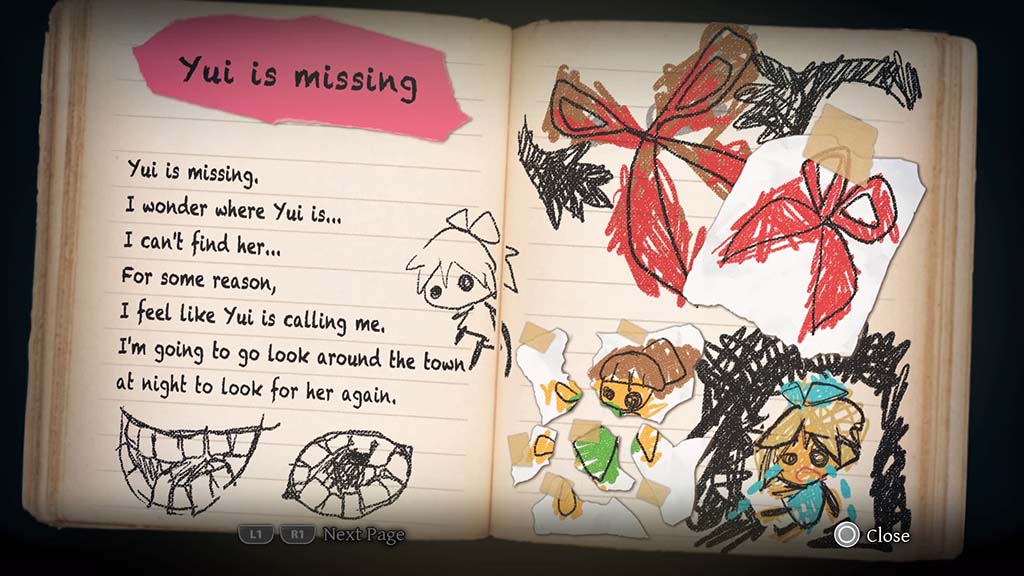 Yui is missing
Yui is missing.
I wonder where Yui is...
I can't find her...
For some reason,
I feel like Yui is calling me.
I'm going to go look around the town
at night to look for her again.
L1 R1 Next Page
Close